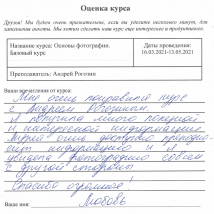 Оценка курса
Друзья! Мы будем очень признательны, если вы уделите несколько минут, для
заполнения анкеты. Мы хотим сделать наш курс еще интересно и продуктивно.
Название курса: Основы фотографии.
Базовый курс
Дата проведения:
16.03.2021-13.05.2021
Преподаватель: Андрей Рогозин
Ваши впечатления от курса:
Мне очень понравился курс
с Андреем
Я получила много полезной
и интересной информации
Андрей очень доступно
информацию и я
увидела фотографию совсем
с другой стороны
Спасибо огромное!
Ваше имя: Любовь